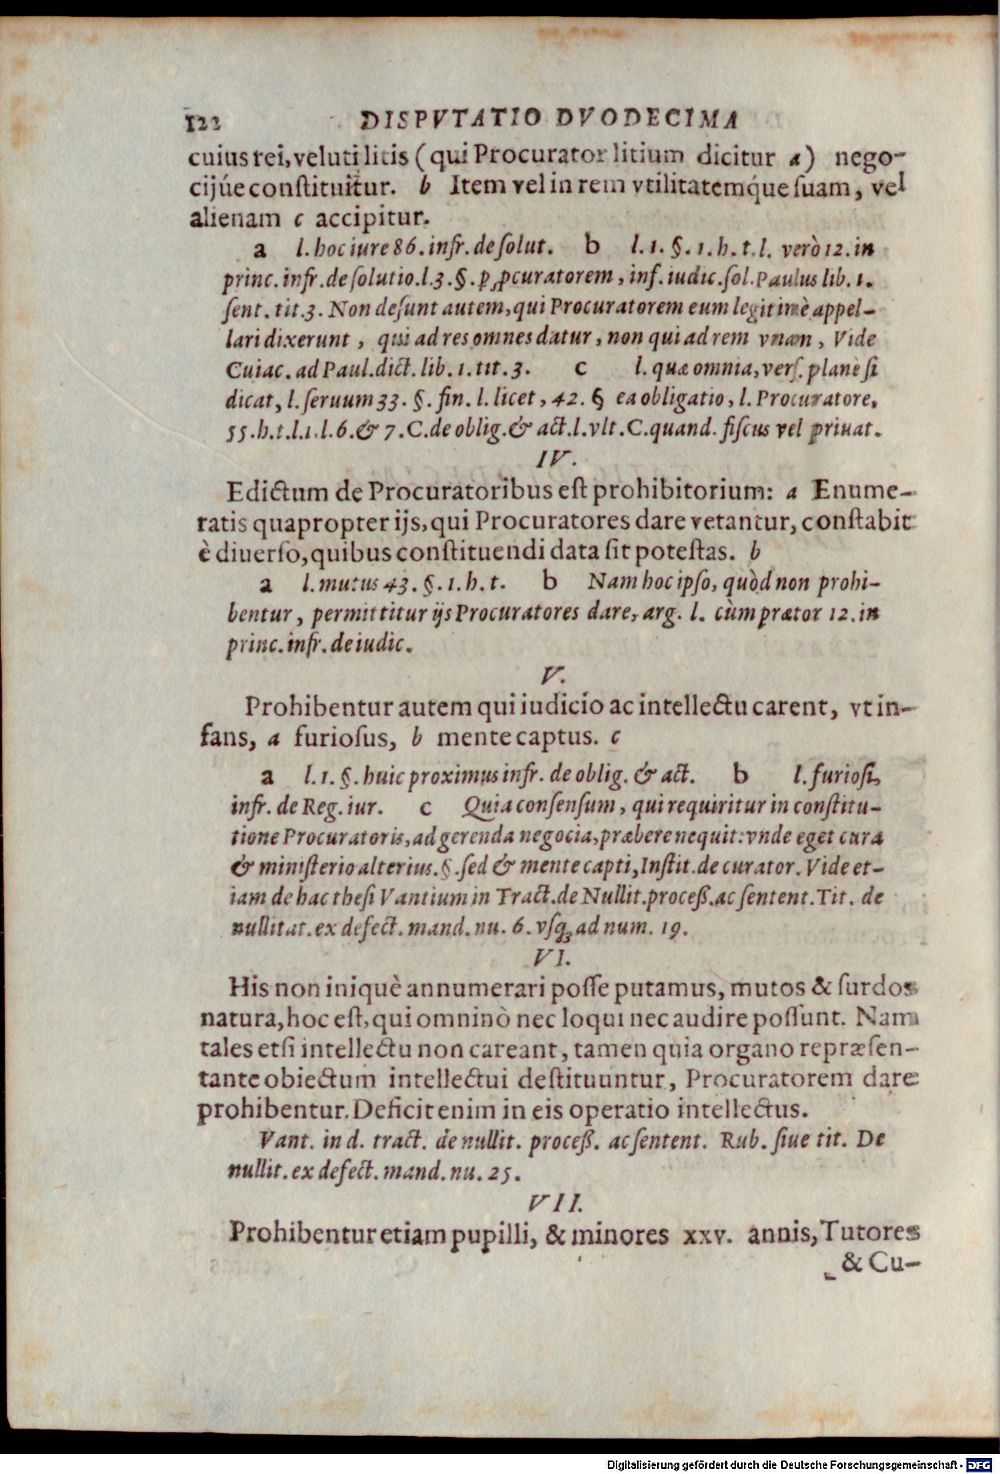 122 DISPVTATIO DVODECIMA
cuius rei, veluti litis (qui Procurator litium dicitur a) nego-
cijúe constituitur. b Item vel in rem vtilitatemq́ue suam, vel
alienam c accipitur.
a l. hoc iure 86. infr. de solut. b l. 1. §. 1. h. t. l. verò 12. in
princ. infr. de solutio. l. 3. §. ꝓꝓcuratorem, inf. iudic. sol. Paulus lib. 1.
sent. tit. 3. Non desunt autem, qui Procuratorem eum legitimè appel-
lari dixerunt, qui ad res omnes datur, non qui ad rem vnam, Vide
Cuiac. ad Paul. dict. lib. 1. tit. 3. c l. quæ omnia, vers. planè si
dicat, l. seruum 33. §. fin. l. licet, 42. § ea obligatio, l. Procuratore,
55. h. t. l. 1. l. 6. & 7. C. de oblig. & act. l. vlt. C. quand. fiscus vel priuat.
IV.
Edictum de Procuratoribus est prohibitorium: a Enume-
ratis quapropter ijs, qui Procuratores dare vetantur, constabit
è diuerso, quibus constituendi data sit potestas. b
a l. mutus 43. §. 1. h. t. b Nam hoc ipso, quòd non prohi-
bentur, permittitur ijs Procuratores dare, arg. l. cùm prætor 12. in
princ. infr. de iudic.
V.
Prohibentur autem qui iudicio ac intellectu carent, vt in-
fans, a furiosus, b mente captus. c
a l. 1. §. huic proximus infr. de oblig. & act. b l. furiosi,
infr. de Reg. iur. c Quia consensum, qui requiritur in constitu-
tione Procuratoris, ad gerenda negocia, præbere nequit: vnde eget cura
& ministerio alterius. §. sed & mente capti, Instit. de curator. Vide et-
iam de hac thesi Vantium in Tract. de Nullit. proceß. ac sentent. Tit. de
nullitat. ex defect. mand. nu. 6. vsq; ad num. 19.
VI.
His non iniquè annumerari posse putamus, mutos & surdos
natura, hoc est, qui omninò nec loqui nec audire possunt. Nam
tales etsi intellectu non careant, tamen quia organo repræsen-
tante obiectum intellectui destituuntur, Procuratorem dare
prohibentur. Deficit enim in eis operatio intellectus.
Vant. in d. tract. de nullit. proceß. ac sentent. Rub. siue tit. De
nullit. ex defect. mand. nu. 25.
VII.
Prohibentur etiam pupilli, & minores xxv. annis, Tutores
& Cu-
Digitalisierung gefördert durch die Deutsche Forschungsgemeinschaft - DFG